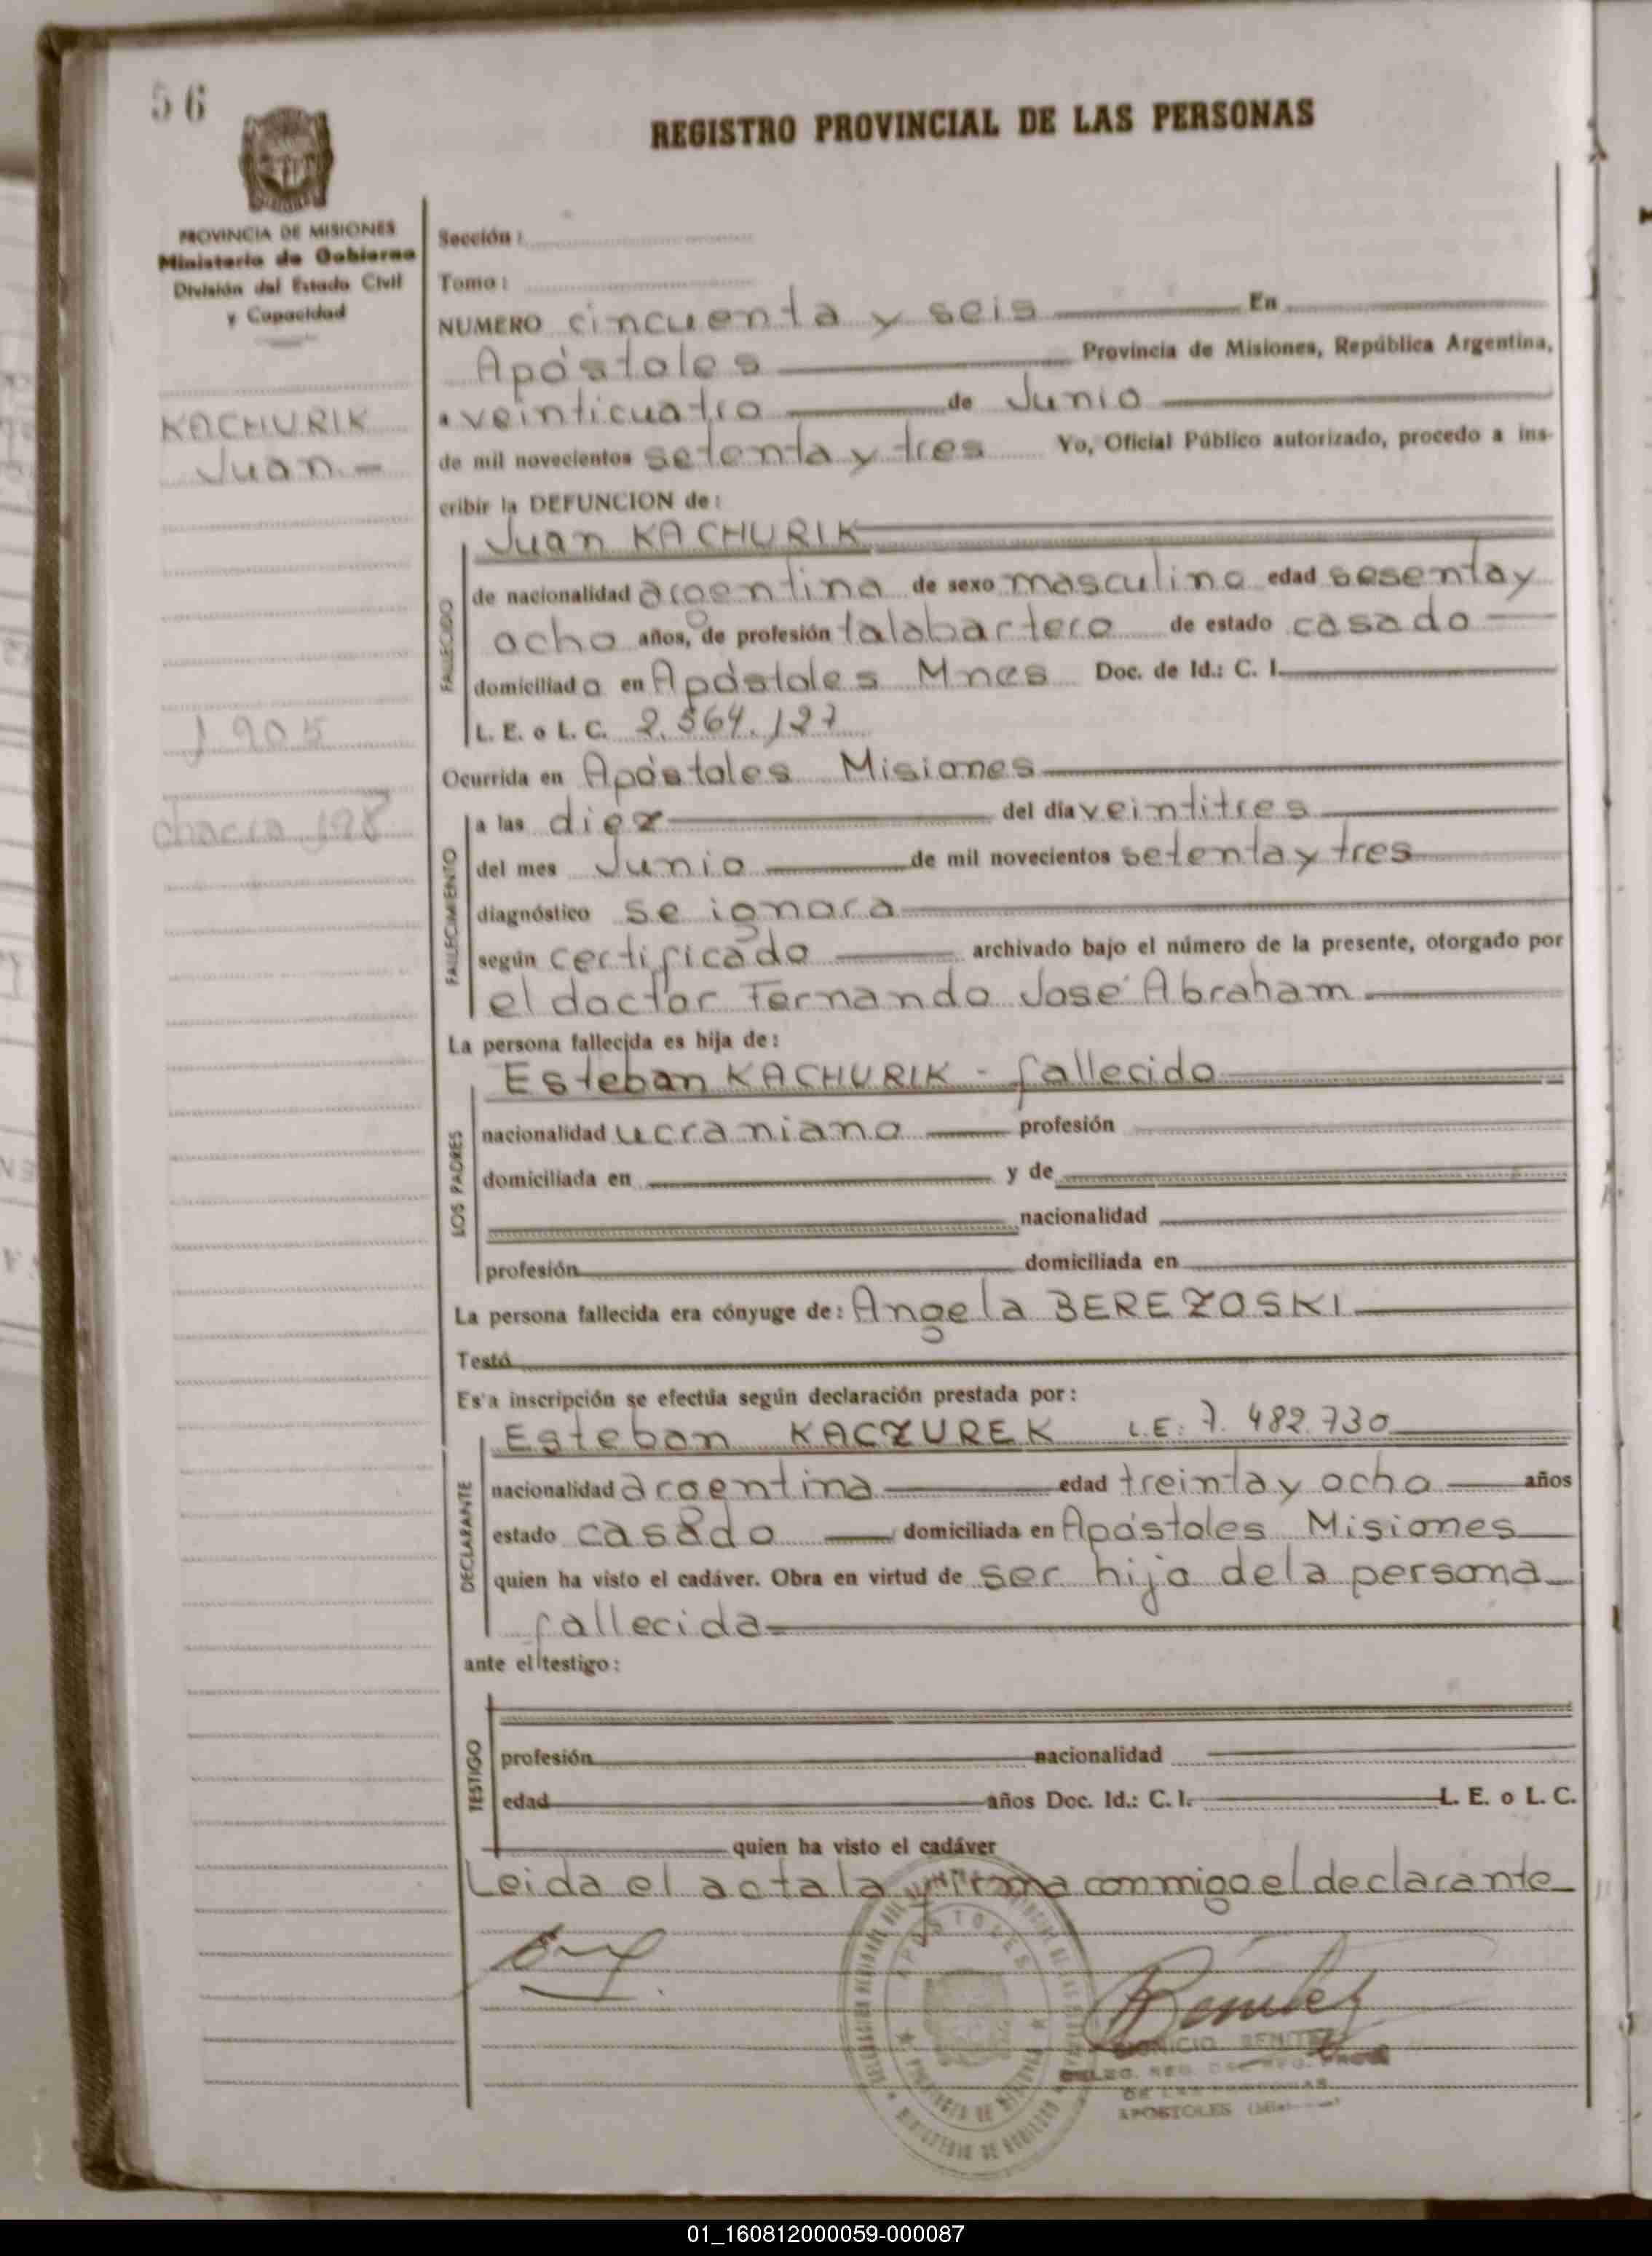 56
REGISTRO PROVINCIAL DE LAS PERSONAS
PROVINCIA DE MISIONES
Ministerio de Gobierno
División del Estado Civil
y Capacidad
KACHURIK
Juan.-
1905
chacra 198
Sección:
Tomo:
NUMERO cincuenta y seis En
Apóstoles Provincia de Misiones, República Argentina,
a veinticuatro de Junio
de mil novecientos setenta y tres Yo, Oficial Público autorizado, procedo a ins-
cribir la DEFUNCION de:
Juan KACHURIK
FALLECIDO
de nacionalidad argentina de sexo masculino edad sesenta y
ocho años, de profesión talabartero de estado casado
domiciliado en Apóstoles Mnes Doc. de Id.: C. I.
L. E. o L. C. 2.564.127
Ocurrida en Apóstoles Misiones
FALLECIMIENTO
a las diez del día veintitres
del mes Junio de mil novecientos setenta y tres
diagnóstico se ignora
según certificado archivado bajo el número de la presente, otorgado por
el doctor Fernando José Abraham
La persona fallecida es hija de:
LOS PADRES
Esteban KACHURIK - fallecido
nacionalidad ucraniano profesión
domiciliada en y de
nacionalidad
profesión domiciliada en
La persona fallecida era cónyuge de: Angela BEREZOSKI
Testó
Es'a inscripción se efectúa según declaración prestada por:
DECLARANTE
Esteban KACZUREK L.E: 7.482.730
nacionalidad argentina edad treinta y ocho años
estado casado domiciliada en Apóstoles Misiones
quien ha visto el cadáver. Obra en virtud de ser hijo dela persona
fallecida
ante el testigo:
TESTIGO
profesión nacionalidad
edad años Doc. Id.: C. I. L. E. o L. C.
quien ha visto el cadáver
Leida el acta la firma conmigo el declarante
APOSTOLES
Benitez
BENITEZ
DE LAS PERSONAS
APOSTOLES
01_160812000059-000087